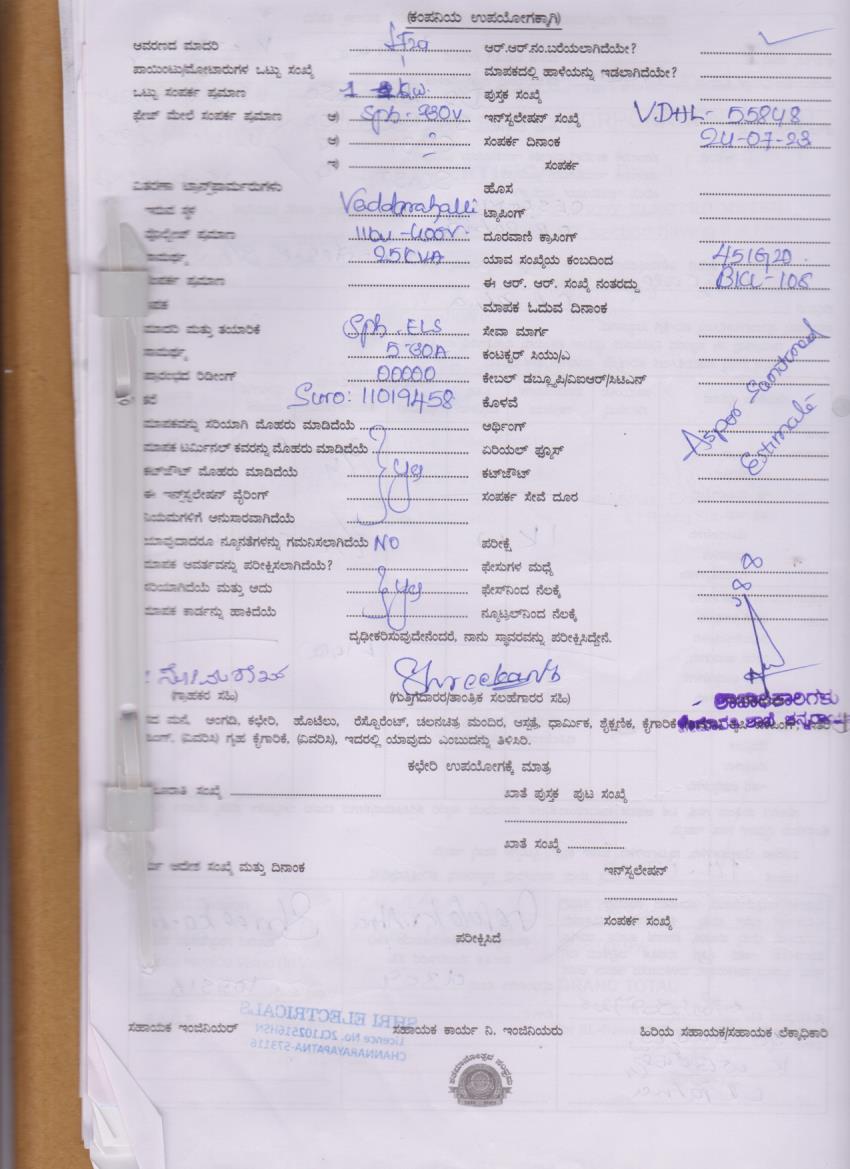 (ಕಂಪನಿಯ ಉಪಯೋಗಕ್ಕಾಗಿ)
ಆವರಣದ ಮಾದರಿ ಆರ್.ಆರ್.ನಂ.ಬರೆಯಲಾಗಿದೆಯೇ?
ಪಾಯಿಂಟು/ಮೋಟಾರುಗಳ ಒಟ್ಟು ಸಂಖ್ಯೆ 1 ಮಾಪಕದಲ್ಲಿ ಹಾಳೆಯನ್ನು ಇಡಲಾಗಿದೆಯೇ?
ಒಟ್ಟು ಸಂಪರ್ಕ ಪ್ರಮಾಣ 1 KW. ಪುಸ್ತಕ ಸಂಖ್ಯೆ
ಫೇಜ್ ಮೇಲೆ ಸಂಪರ್ಕ ಪ್ರಮಾಣ ಅ) Sph- 230V ಇನ್‌ಸ್ಟಲೇಷನ್ ಸಂಖ್ಯೆ VDHL- 55848
ಆ) ಸಂಪರ್ಕ ದಿನಾಂಕ 24-07-23
ಇ) ಸಂಪರ್ಕ
ವಿತರಣಾ ಟ್ರಾನ್ಸ್‌ಫಾರ್ಮರುಗಳು ಹೊಸ
ಇರುವ ಸ್ಥಳ Vaddarahalli ಟ್ಯಾಪಿಂಗ್
ವೋಲ್ಟೇಜ್ ಪ್ರಮಾಣ 11kv-400v. ದೂರವಾಣಿ ಕ್ರಾಸಿಂಗ್
ಸಾಮರ್ಥ್ಯ 25KVA ಯಾವ ಸಂಖ್ಯೆಯ ಕಂಬದಿಂದ
ಸಂಪರ್ಕ ಪ್ರಮಾಣ ಈ ಆರ್. ಆರ್. ಸಂಖ್ಯೆ ನಂತರದ್ದು
ಮಾಪಕ ಓದುವ ದಿನಾಂಕ
ಮಾದರಿ ಮತ್ತು ತಯಾರಿಕೆ Sph. ELS ಸೇವಾ ಮಾರ್ಗ
ಸಾಮರ್ಥ್ಯ 5-30A ಕಂಟಕ್ಟರ್ ಸಿಯು/ಎ
ಪ್ರಾರಂಭದ ರಿಡೀಂಗ್ 00000 ಕೇಬಲ್ ಡಬ್ಲ್ಯೂಪಿ/ವಿಐಆರ್/ಸಿಟಿಎನ್
11019458 ಕೊಳವೆ
As per Santioned
Estimate
ಮಾಪಕವನ್ನು ಸರಿಯಾಗಿ ಮೊಹರು ಮಾಡಿದೆಯೆ ಅರ್ಥಿಂಗ್
ಮಾಪಕ ಟರ್ಮಿನಲ್ ಕವರನ್ನು ಮೊಹರು ಮಾಡಿದೆಯೆ ಏರಿಯಲ್ ಫ್ಯೂಸ್
ಕಟ್‌ಔಟ್ ಮೊಹರು ಮಾಡಿದೆಯೆ yes ಕಟ್‌ಔಟ್
ಈ ಇನ್‌ಸ್ಟಲೇಷನ್ ವೈರಿಂಗ್ ಸಂಪರ್ಕ ಸೇವೆ ದೂರ
ನಿಯಮಗಳಿಗೆ ಅನುಸಾರವಾಗಿದೆಯೆ
ಯಾವುದಾದರೂ ನ್ಯೂನತೆಗಳನ್ನು ಗಮನಿಸಲಾಗಿದೆಯೆ NO ಪರೀಕ್ಷೆ
ಮಾಪಕ ಆವರ್ತವನ್ನು ಪರೀಕ್ಷಿಸಲಾಗಿದೆಯೆ? ಫೇಸುಗಳ ಮಧ್ಯೆ ∞
ಸರಿಯಾಗಿದೆಯೆ ಮತ್ತು ಅದು yes ಫೇಸ್‌ನಿಂದ ನೆಲಕ್ಕೆ ∞
ಮಾಪಕ ಕಾರ್ಡನ್ನು ಹಾಕಿದೆಯೆ ನ್ಯೂಟ್ರಲ್‌ನಿಂದ ನೆಲಕ್ಕೆ
ದೃಢೀಕರಿಸುವುದೇನೆಂದರೆ, ನಾನು ಸ್ಥಾವರವನ್ನು ಪರೀಕ್ಷಿಸಿದ್ದೇನೆ.
Shreekanth
(ಗ್ರಾಹಕರ ಸಹಿ) (ಗುತ್ತಿಗೆದಾರರ/ತಾಂತ್ರಿಕ ಸಲಹೆಗಾರರ ಸಹಿ) ಶಾಖಾಧಿಕಾರಿಗಳು
ಮನೆ, ಅಂಗಡಿ, ಕಛೇರಿ, ಹೊಟೆಲು, ರೆಸ್ಟೊರೆಂಟ್, ಚಲನಚಿತ್ರ ಮಂದಿರ, ಆಸ್ಪತ್ರೆ, ಧಾರ್ಮಿಕ, ಶೈಕ್ಷಣಿಕ, ಕೈಗಾರಿಕ
(ವಿವರಿಸಿ) ಗೃಹ ಕೈಗಾರಿಕೆ, (ವಿವರಿಸಿ), ಇದರಲ್ಲಿ ಯಾವುದು ಎಂಬುದನ್ನು ತಿಳಿಸಿರಿ.
ಕಛೇರಿ ಉಪಯೋಗಕ್ಕೆ ಮಾತ್ರ
ಸಂಖ್ಯೆ ಖಾತೆ ಪುಸ್ತಕ ಪುಟ ಸಂಖ್ಯೆ
ಖಾತೆ ಸಂಖ್ಯೆ
ಆದೇಶ ಸಂಖ್ಯೆ ಮತ್ತು ದಿನಾಂಕ ಇನ್‌ಸ್ಟಲೇಷನ್
ಸಂಪರ್ಕ ಸಂಖ್ಯೆ
ಪರೀಕ್ಷಿಸಿದೆ
SHRI ELECTRICALS
Licence No. 2CL102516HSN
CHANNARAYAPATNA-573116
ಸಹಾಯಕ ಇಂಜಿನಿಯರ್ ಸಹಾಯಕ ಕಾರ್ಯ ನಿ. ಇಂಜಿನಿಯರು ಹಿರಿಯ ಸಹಾಯಕ/ಸಹಾಯಕ ಲೆಕ್ಕಾಧಿಕಾರಿ